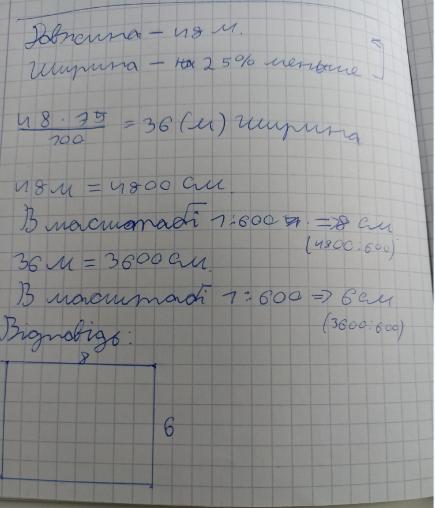 Довжина – 48 м.
Ширина – на 25% менше
48 · 75
100
= 36 (м) ширина
48 м = 4800 см.
В масштабі 1:600 => 8 см
(4800:600)
36 м = 3600 см.
В масштабі 1:600 => 6 см
(3600:600)
Відповідь:
8
6